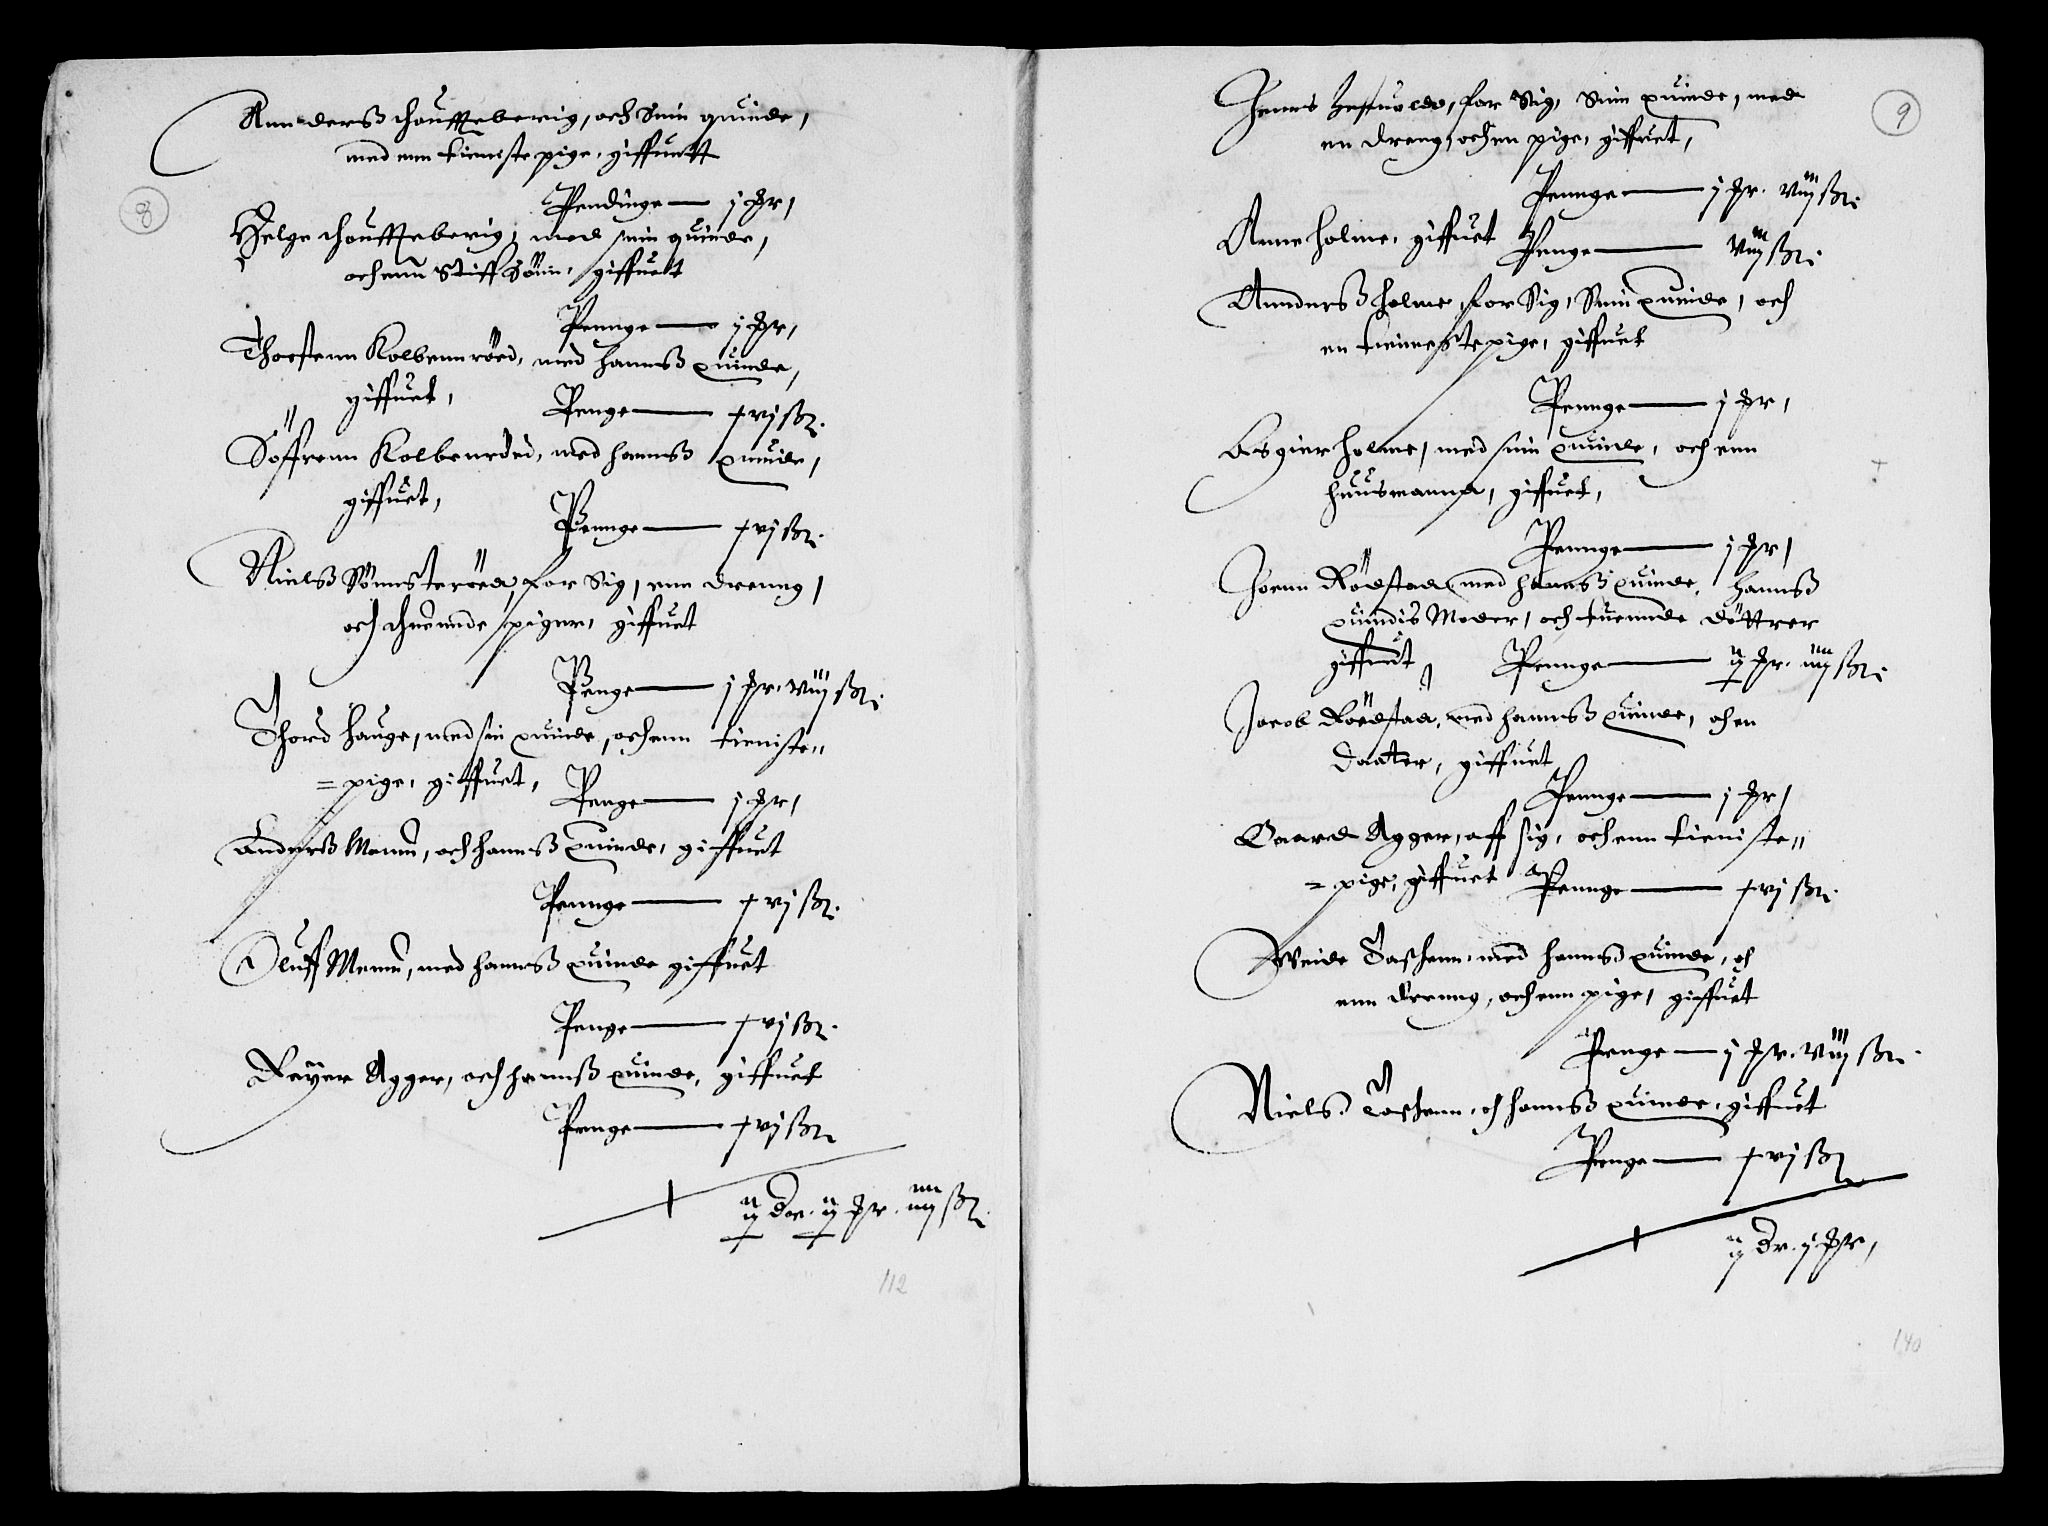 8
Annderß Houffteberig, och Sinn quinde,
med enn tieniste pige, giffuett
Pendinge — j Jr,
Helge Houffteberig, med sinn quinde,
och enn Stiffsönn, giffuett
Pennge — j Jr,
Thorstenn Kolbennröed, med hannß quinde,
giffuet,
Penge — xvj ßr.
Söffrenn Kolbenröd, med hannß quinde,
giffuet,
Pennge — xvj ßr.
Nielß Sönnsteröed, for Sig, enn drenng,
och thuennde piger, giffuet
Penge — j Jr. viij ßr.
Thord Hauge, med sin quinde, och enn tieniste„
= pige, giffuet,
Penge — j Jr,
Anderß Menn, och hannß quinde, giffuet
Pennge — xvj ßr.
Oluff Menn, med hannß quinde giffuet
Penge — xvj ßr.
Reyer Agger, och hannß quinde, giffuet
Penge — xvj ßr.
ij dr. ij Jr. iiij ßr.
112
9
for Sig, Sinn quinde, med
en dreng, och en pige, giffuet,
Pennge — j Jr. viij ßr.
Anne Holme, giffuet Penge — viij ßr.
Annderß Holme, for Sig, Sinn quinde, och
en tienneste pige, giffuet
Pennge — j Jr,
Asgier Holme, med sinn quinde, och enn
huusmannd, giffuet,
Pennge — j Jr,
Joenn Rödstad, med hannß quinde, hannß
quindis Moder, och tuennde döttrer
giffuet, Pennge — ij Jr. iiij ßr.
Jacob Rödstad, med hannß quinde, och en
daater, giffuet
Pennge — j Jr,
Gaard Agger, aff sig, och enn tieniste„
= pige, giffuet Pennge — xvj ßr.
Weide Taskenn, med hannß quinde, och
enn drenng, och enn pige, giffuet
Penge — j Jr. viij ßr.
Nielß Taskenn, och hannß quinde, giffuet
Penge — xvj ßr
ij dr. j Jr,
140